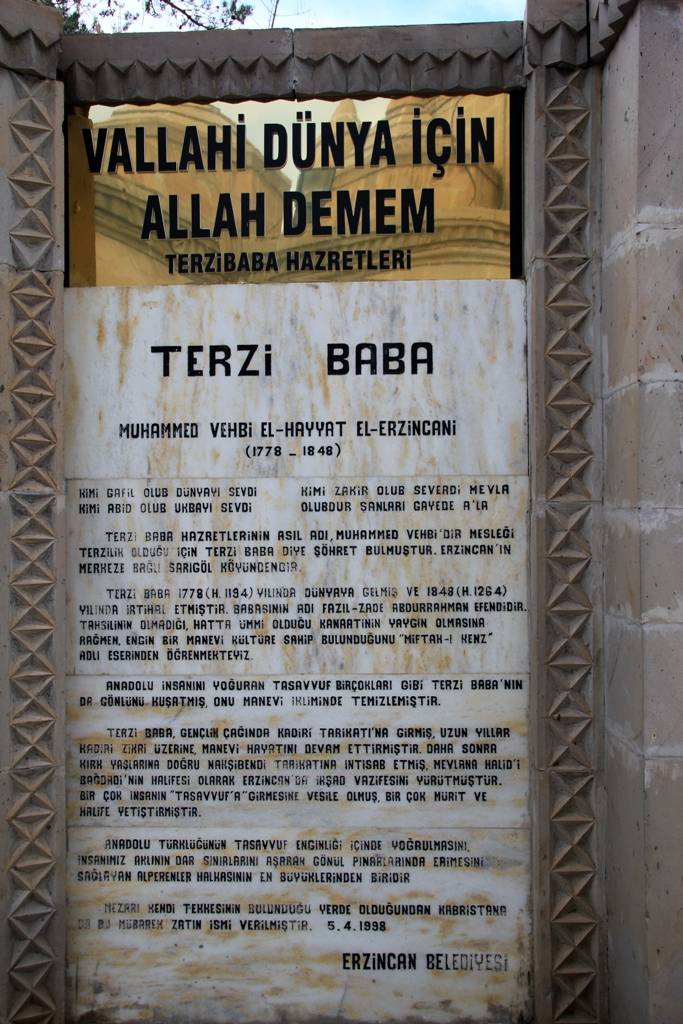 VALLAHİ DÜNYA İÇİN
ALLAH DEMEM
TERZİBABA HAZRETLERİ
TERZİ BABA
MUHAMMED VEHBİ EL-HAYYAT EL-ERZİNCANİ
(1778 _ 1848)
KIMI GAFIL OLUB DÜNYAYI SEVDI
KIMI ABID OLUB UKBAYI SEVDI
KIMI ZAKIR OLUB SEVERDI MEVLA
OLUBDUR ŞANLARI GAYEDE A'LA
TERZİ BABA HAZRETLERİNİN ASIL ADI, MUHAMMED VEHBİ'DİR MESLEĞİ
TERZİLİK OLDUĞU İÇİN TERZİ BABA DİYE ŞÖHRET BULMUŞTUR. ERZİNCAN'IN
MERKEZE BAĞLI SARIGÖL KÖYÜNDENDİR.
TERZİ BABA 1778 (H. 1194) YILINDA DÜNYAYA GELMİŞ VE 1848 (H. 1264)
YILINDA İRTİHAL ETMİŞTİR. BABASININ ADI FAZIL-ZADE ABDURRAHMAN EFENDİDİR.
TAHSİLİNİN OLMADIĞI, HATTA ÜMMİ OLDUĞU KANAATİNİN YAYGIN OLMASINA
RAĞMEN, ENGİN BİR MANEVİ KÜLTÜRE SAHİP BULUNDUĞUNU "MİFTAH-I KENZ"
ADLI ESERİNDEN ÖĞRENMEKTEYİZ.
ANADOLU İNSANINI YOĞURAN TASAVVUF BİRÇOKLARI GİBİ TERZİ BABA'NIN
DA GÖNLÜNÜ KUŞATMIŞ, ONU MANEVİ İKLİMİNDE TEMİZLEMİŞTİR.
TERZİ BABA, GENÇLİK ÇAĞINDA KADİRİ TARİKATI'NA GİRMİŞ, UZUN YILLAR
KADİRİ ZİKRİ ÜZERİNE, MANEVİ HAYATINI DEVAM ETTİRMİŞTİR. DAHA SONRA
KIRK YAŞLARINA DOĞRU NAKŞIBENDİ TARİKATINA İNTİSAB ETMİŞ, MEVLANA HALİD'İ
BAĞDADİ'NİN HALİFESİ OLARAK ERZİNCAN'DA İRŞAD VAZİFESİNİ YÜRÜTMÜŞTÜR.
BİR ÇOK İNSANIN "TASAVVUF'A" GİRMESİNE VESİLE OLMUŞ, BİR ÇOK MÜRİT VE
HALİFE YETİŞTİRMİŞTİR.
ANADOLU TÜRKLÜĞÜNÜN TASAVVUF ENGİNLİĞİ İÇİNDE YOĞRULMASINI,
İNSANIMIZ AKLININ DAR SINIRLARINI AŞARAK GÖNÜL PINARLARINDA ERİMESİNİ
SAĞLAYAN ALPERENLER HALKASININ EN BÜYÜKLERİNDEN BİRİDİR
MEZARI KENDİ TEKKESİNİN BULUNDUĞU YERDE OLDUĞUNDAN KABRİSTANA
DA BU MÜBAREK ZATIN İSMİ VERİLMİŞTİR. 5.4.1998
ERZİNCAN BELEDİYESİ